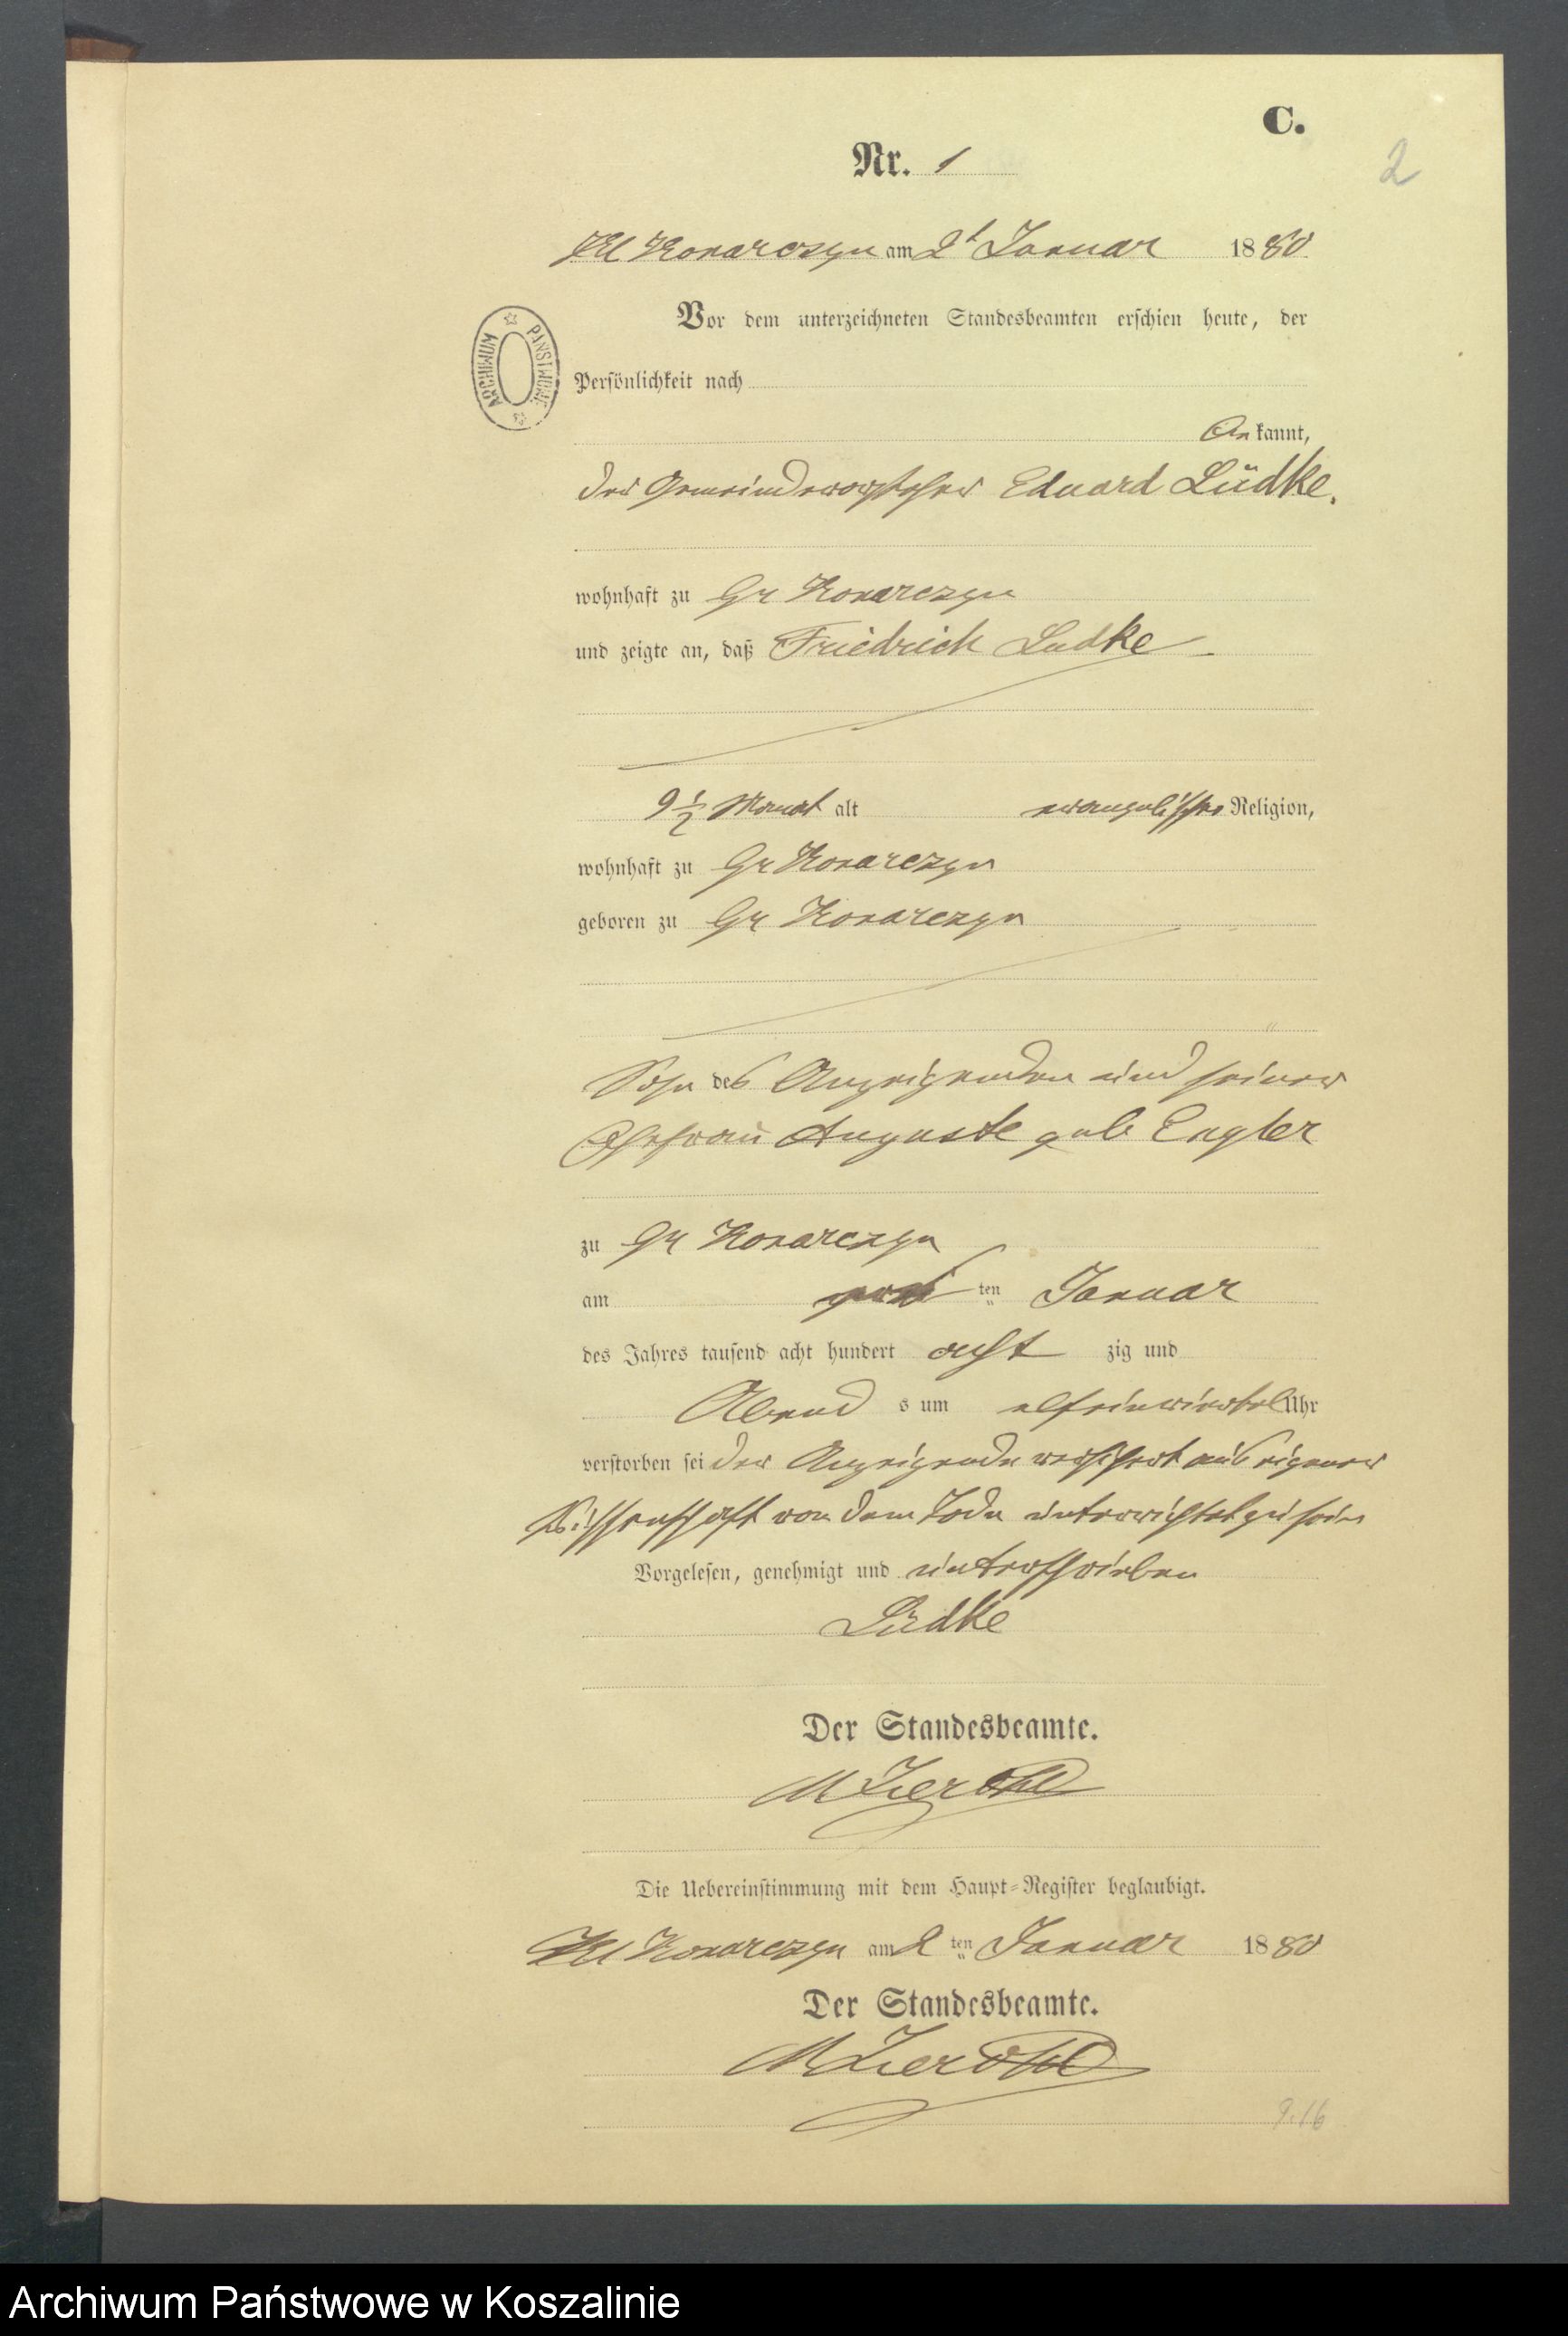 C.
Nr. 1
2
Kl Konarczyn am 2t Januar 1880
Vor dem unterzeichneten Standesbeamten erschien heute, der
ARCHIWUM PAŃSTWOWE
Persönlichkeit nach
kannt,
der Gemeindevorsteher Eduard Lüdke.
wohnhaft zu Gr Konarczyn
und zeigte an, daß Friedrich Ludke
9 1/2 Monat alt evangelischer Religion,
wohnhaft zu Gr Konarczyn
geboren zu Gr Konarczyn
Sohn des Anzeigenden und seiner
Ehefrau Auguste geb Engler
zu Gr Konarczyn
am ten Januar
des Jahres tausend acht hundert acht zig und
Abend s um elfeinviertel Uhr
verstorben sei der Anzeigende versichert aus eigener
Wissenschaft von dem Tode unterrichtet zu sein
Vorgelesen, genehmigt und unterschrieben
Lüdke
Der Standesbeamte.
Die Uebereinstimmung mit dem Haupt-Register beglaubigt.
Kl Konarczyn am 2 ten Januar 1880
Der Standesbeamte.
9.16
Archiwum Państwowe w Koszalinie